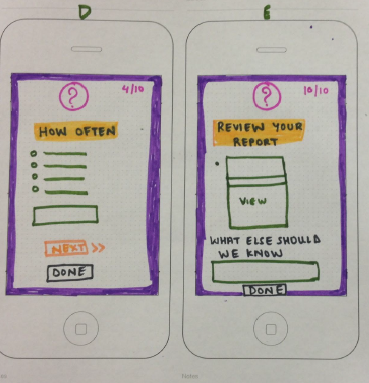 D
?
4/10
HOW OFTEN
NEXT >>
DONE
E
?
10/10
REVIEW YOUR
REPORT
VIEW
WHAT ELSE SHOULD
WE KNOW
DONE
Notes